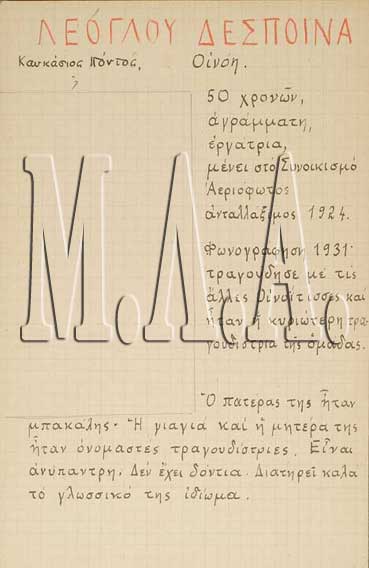 ΛΕΟΓΛΟΥ ΔΕΣΠΟΙΝΑ
Καυκάσιος Πόντος, Οἰνόη.
50 χρονῶν,
ἀγράμματη,
ἐργάτρια,
μένει στο Συνοικισμό
Ἀεριόφωτος
ἀνταλλάξιμος 1924.
Φωνογράφηση 1931·
τραγούδησε μέ τίς
ἄλλες Οἰνοΐτισσες καί
ἦταν ἡ κυριώτερη τρα-
γουδίστρια τῆς ὁμάδας.
Μ.Λ.Α.
Ὁ πατέρας της ἦταν
μπακάλης· Ἡ γιαγιά καί ἡ μητέρα της
ἦταν ὀνομαστές τραγουδίστριες. Εἶναι
ἀνύπαντρη. Δέν ἔχει δόντια. Διατηρεῖ καλά
τό γλωσσικό της ἰδίωμα.